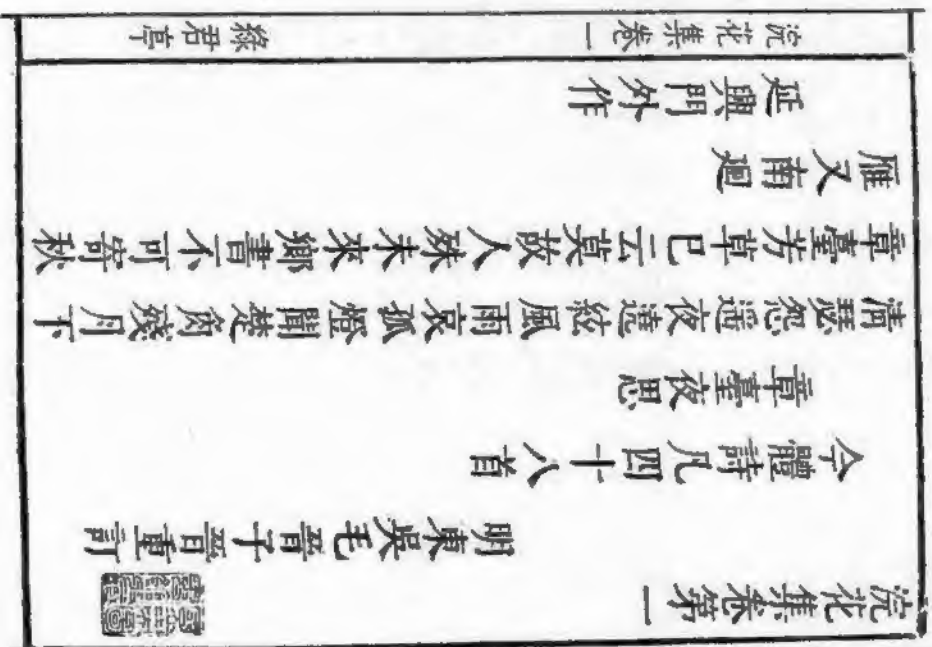 浣花集卷第一
明東吳毛晉子晉重訂
今體詩凡四十八首
章臺夜思
清瑟怨遙夜遶絃風雨哀孤燈聞楚角殘月下
章臺芳草已云莫故人殊未來鄉書不可寄秋
雁又南迴
延興門外作
浣花集卷一 綠君亭